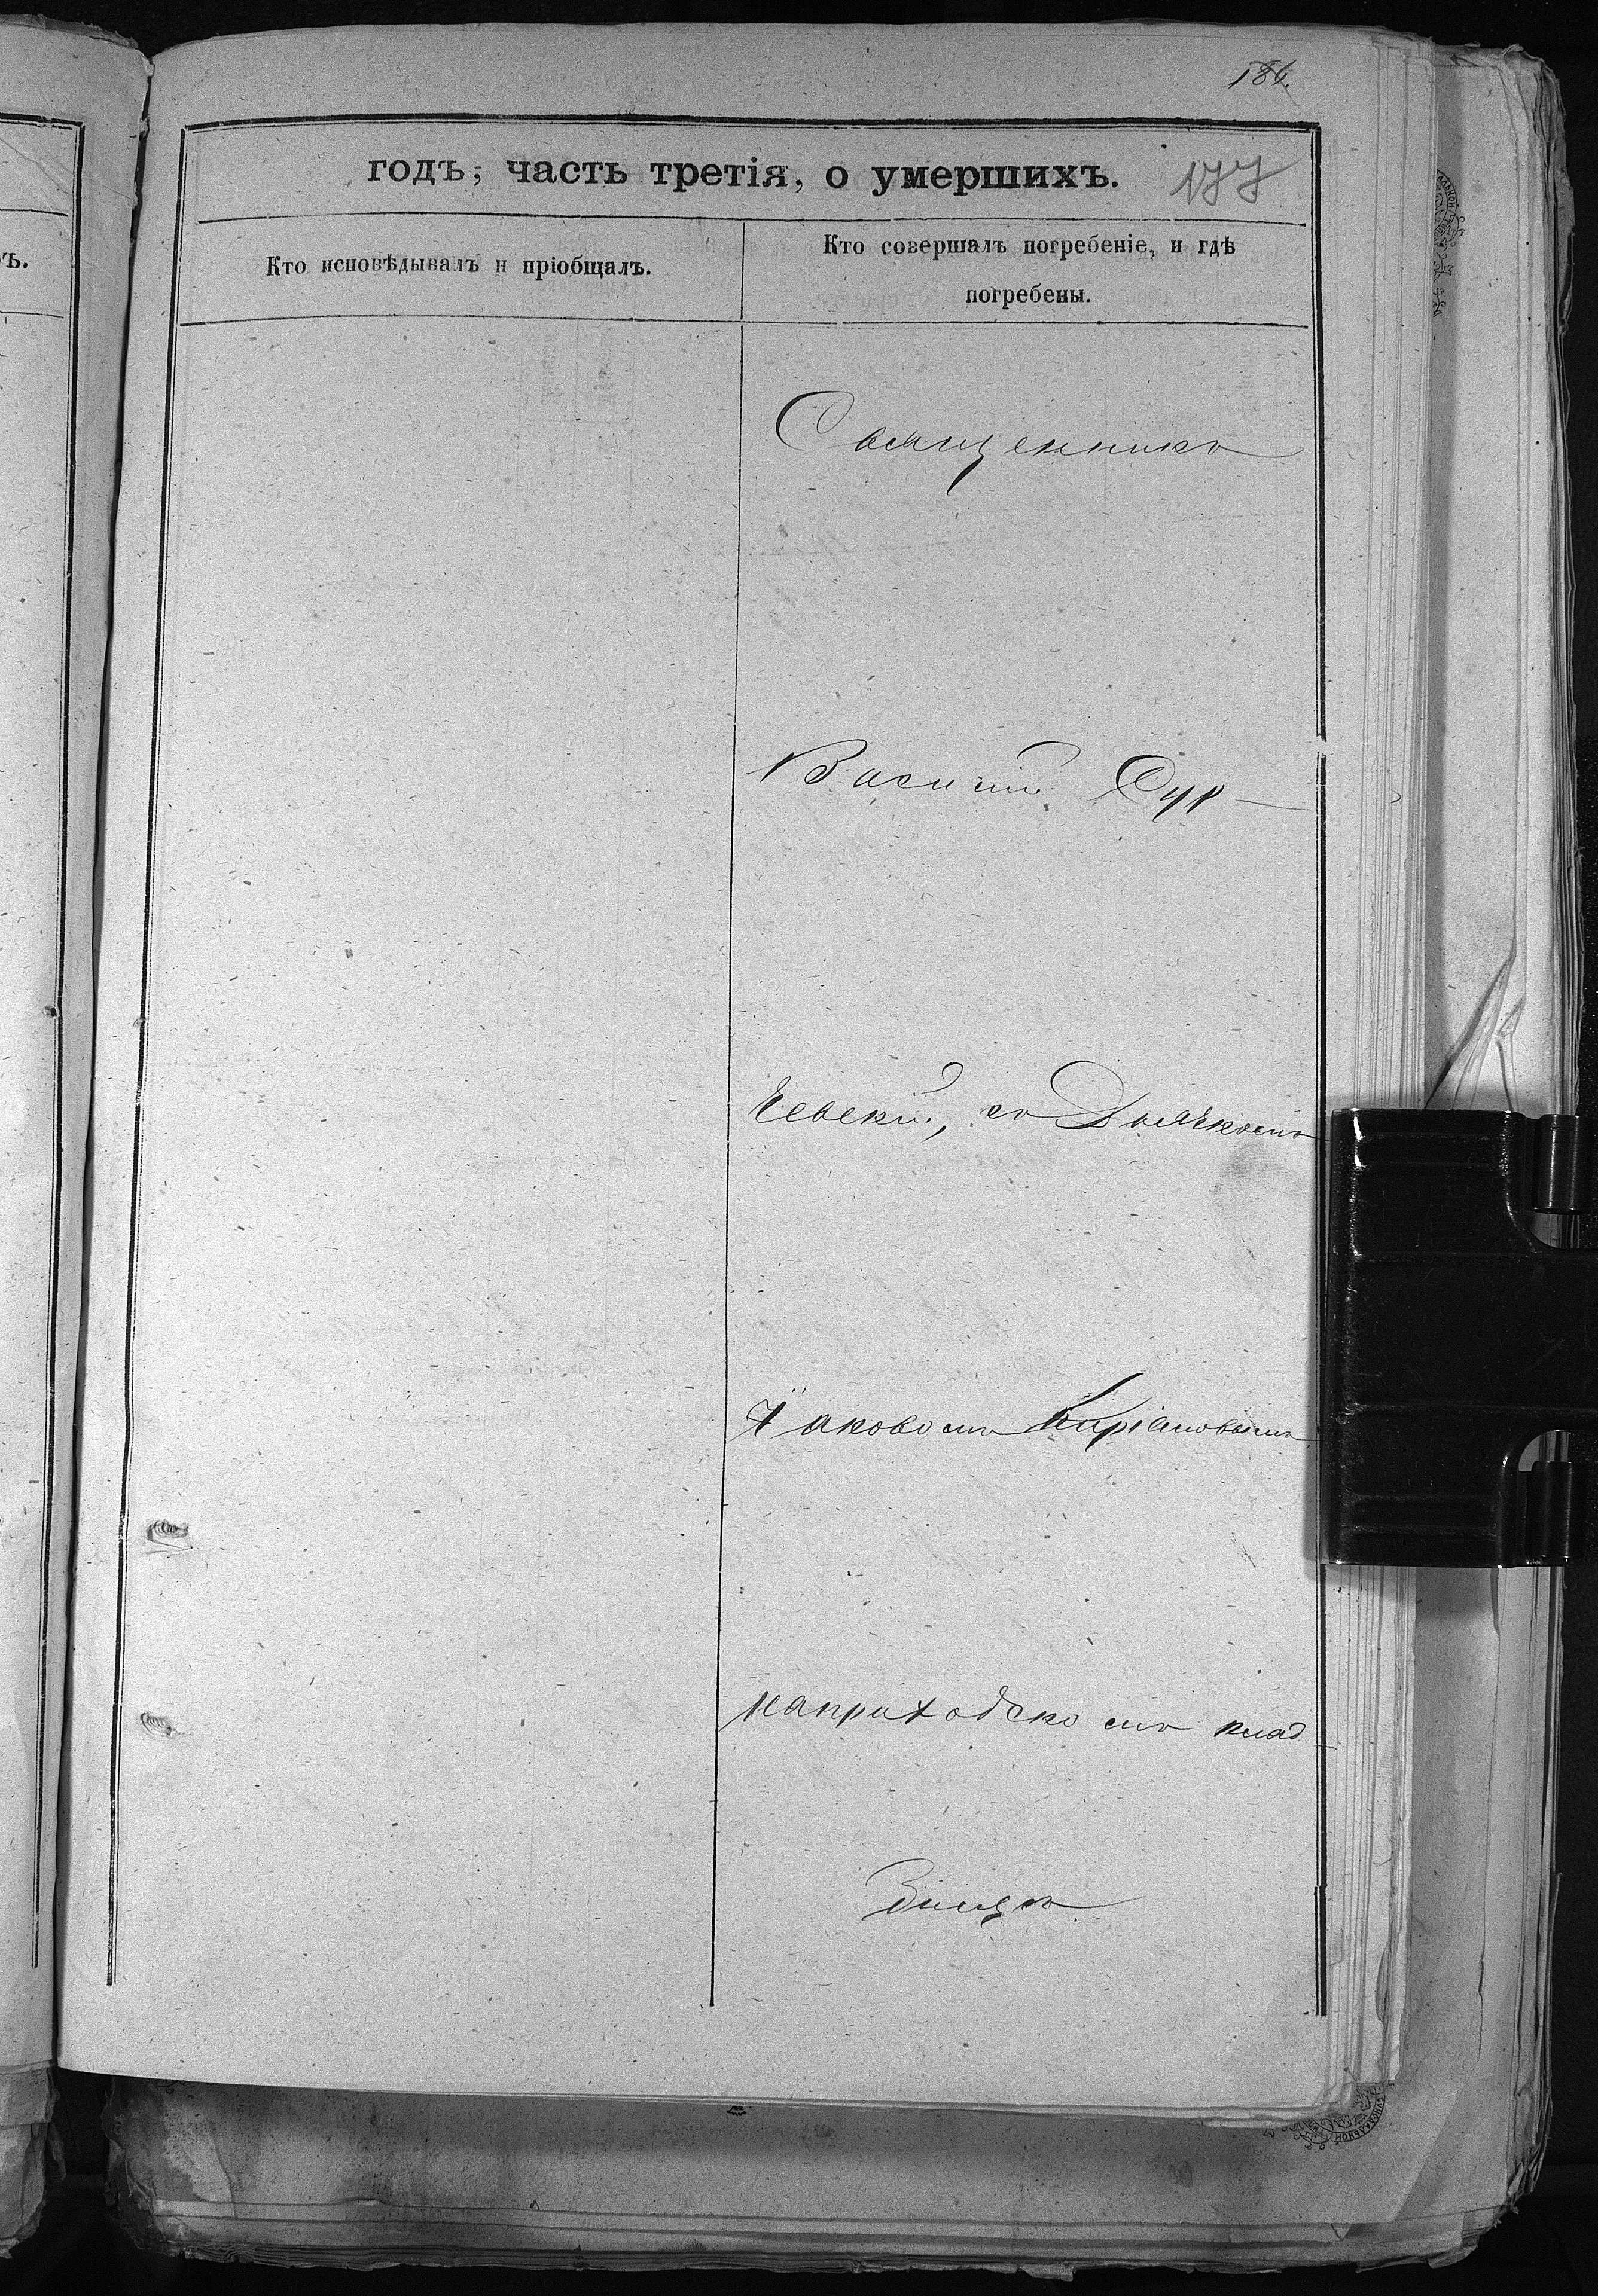 186.
годъ, часть третія, о умершихъ. 177
Кто исповѣдывалъ и пріобщалъ.
Кто совершалъ погребеніе, и гдѣ
погребены.
ъ.
Священникъ
Василій Сур-
чевскій, съ Дьячкомъ
Яковомъ Киріановымъ
наприходскомъ клад-
бищѣ